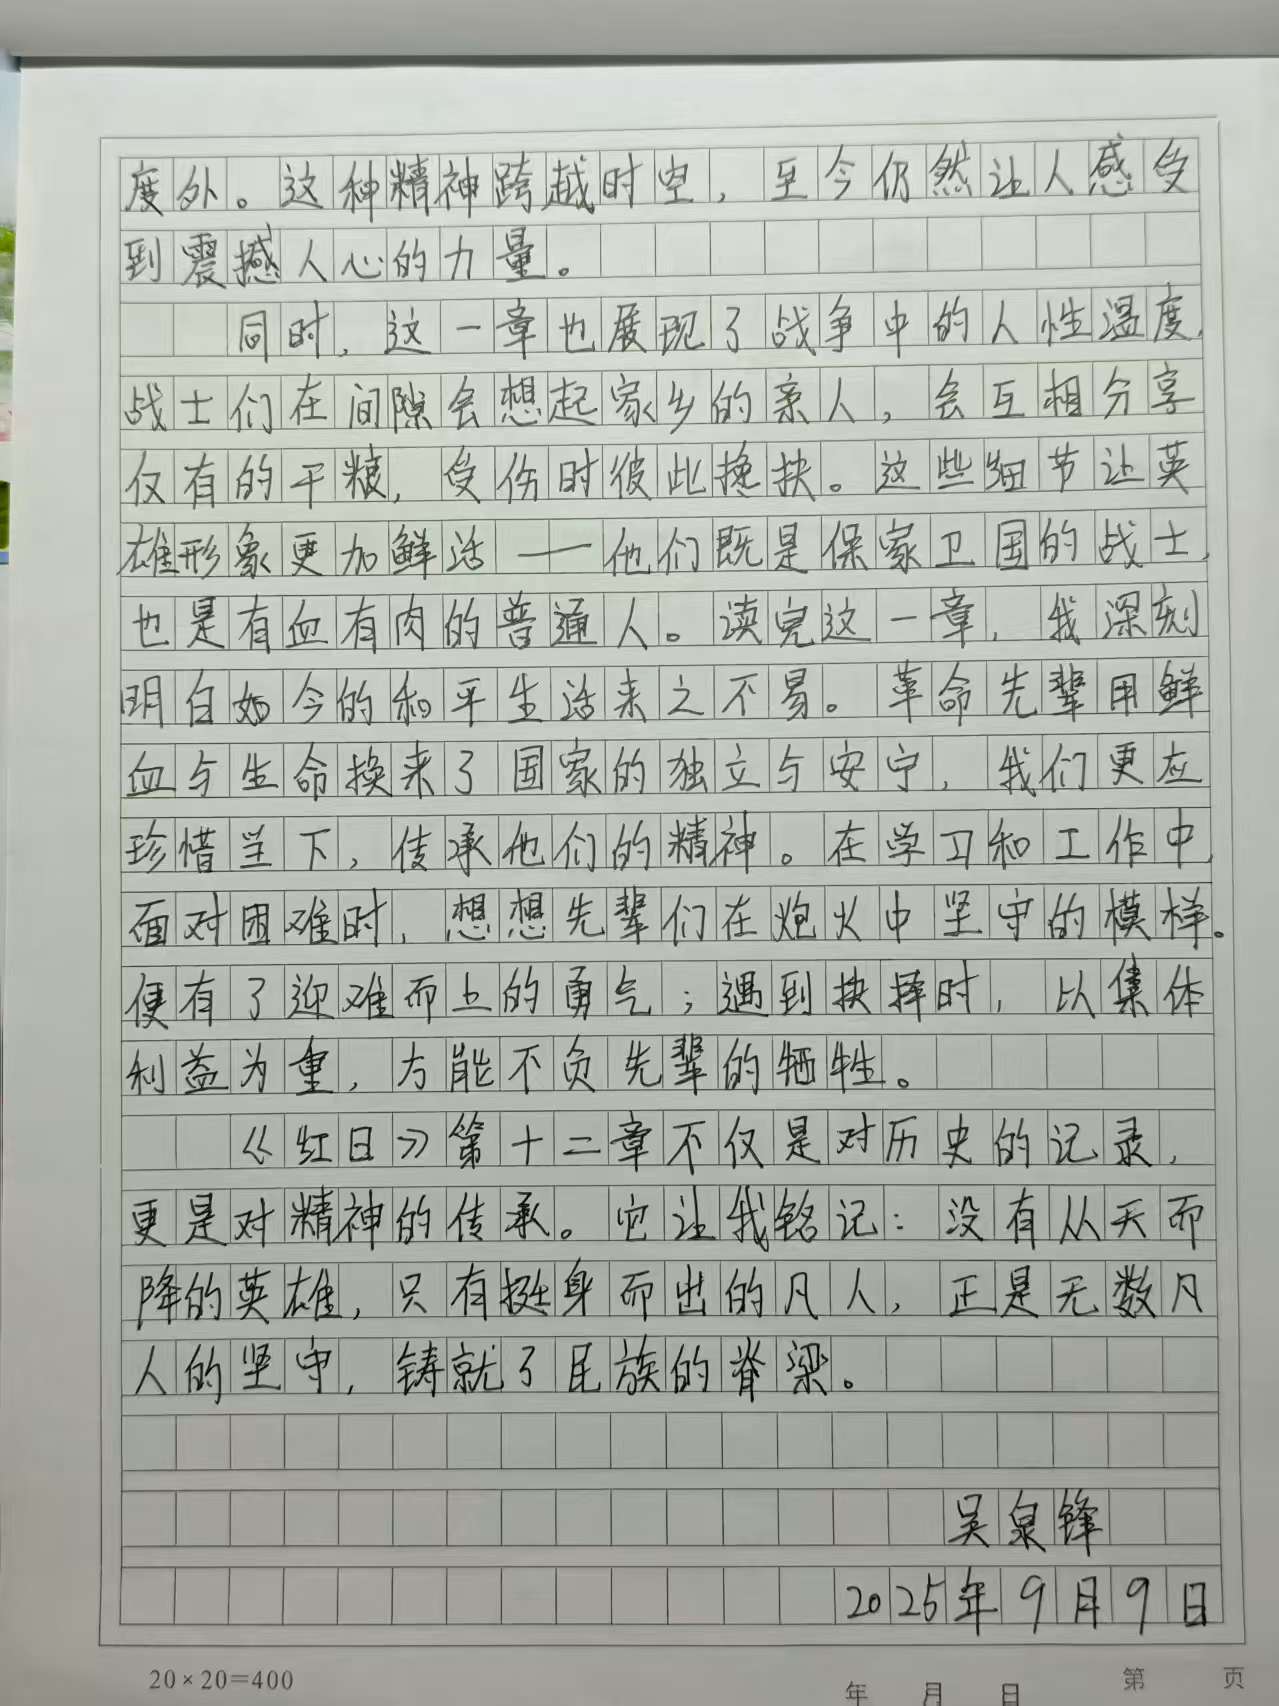 度外。这种精神跨越时空，至今仍然让人感受
到震撼人心的力量。
同时，这一章也展现了战争中的人性温度，
战士们在间隙会想起家乡的亲人，会互相分享
仅有的干粮，受伤时彼此搀扶。这些细节让英
雄形象更加鲜活——他们既是保家卫国的战士，
也是有血有肉的普通人。读完这一章，我深刻
明白如今的和平生活来之不易。革命先辈用鲜
血与生命换来了国家的独立与安宁，我们更应
珍惜当下，传承他们的精神。在学习和工作中，
面对困难时，想想先辈们在炮火中坚守的模样。
便有了迎难而上的勇气；遇到抉择时，以集体
利益为重，方能不负先辈的牺牲。
《红日》第十二章不仅是对历史的记录，
更是对精神的传承。它让我铭记：没有从天而
降的英雄，只有挺身而出的凡人，正是无数凡
人的坚守，铸就了民族的脊梁。
吴泉锋
2025年9月9日
20×20=400
年 月 日
第 页